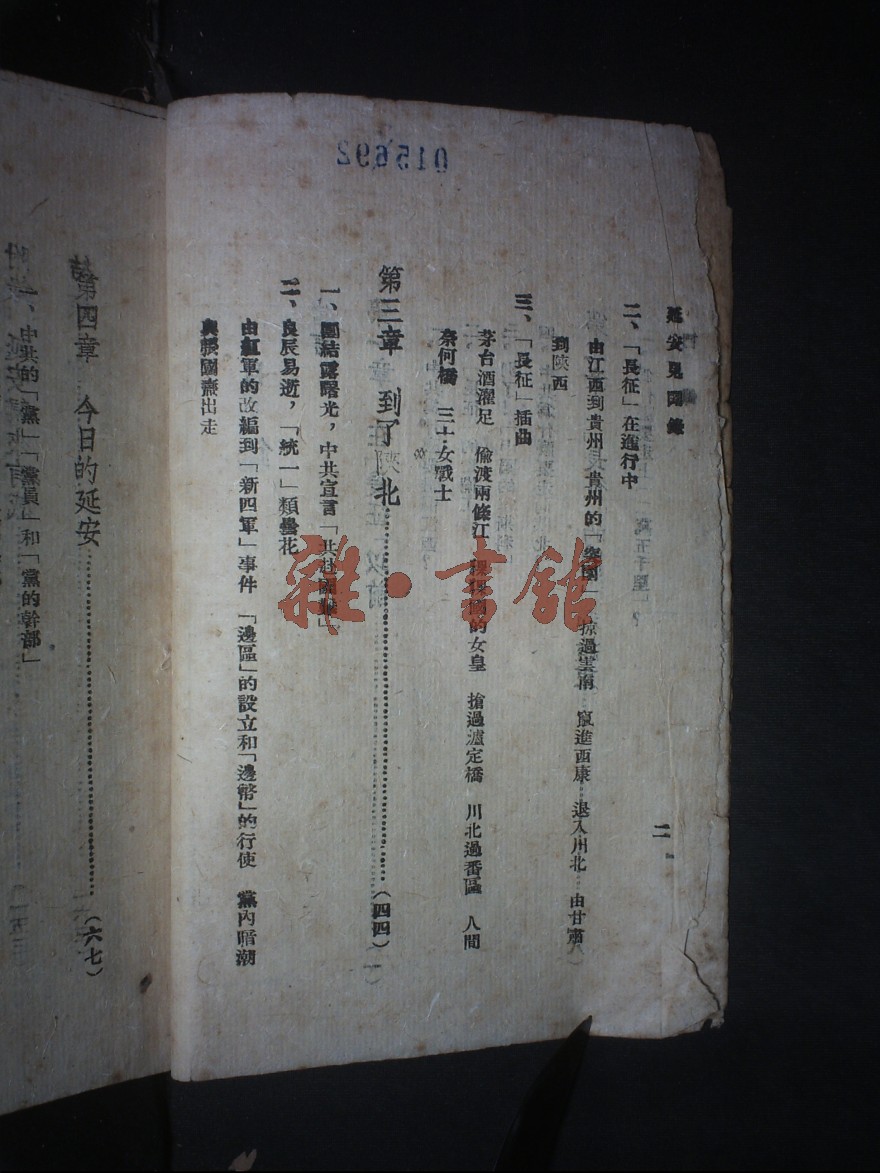 015692
延安見聞錄
二
二、「長征」在進行中
由江西到貴州 貴州的「突圍」 掠過雲南 竄進西康 退入川北 由甘肅
到陝西
三、「長征」插曲
茅台酒濯足 偷渡兩條江 猓猓國的女皇 搶過瀘定橋 川北過番區 人間
奈何橋 三十女戰士
第三章 到了陝北(四四)
一、團結露曙光,中共宣言「共赴國難」
二、良辰易逝,「統一」類曇花
由紅軍的改編到「新四軍」事件 「邊區」的設立和「邊幣」的行使 黨內暗潮
與張國燾出走
第四章 今日的延安(六七)
一、中共的「黨」「黨員」和「黨的幹部」
雜·書館